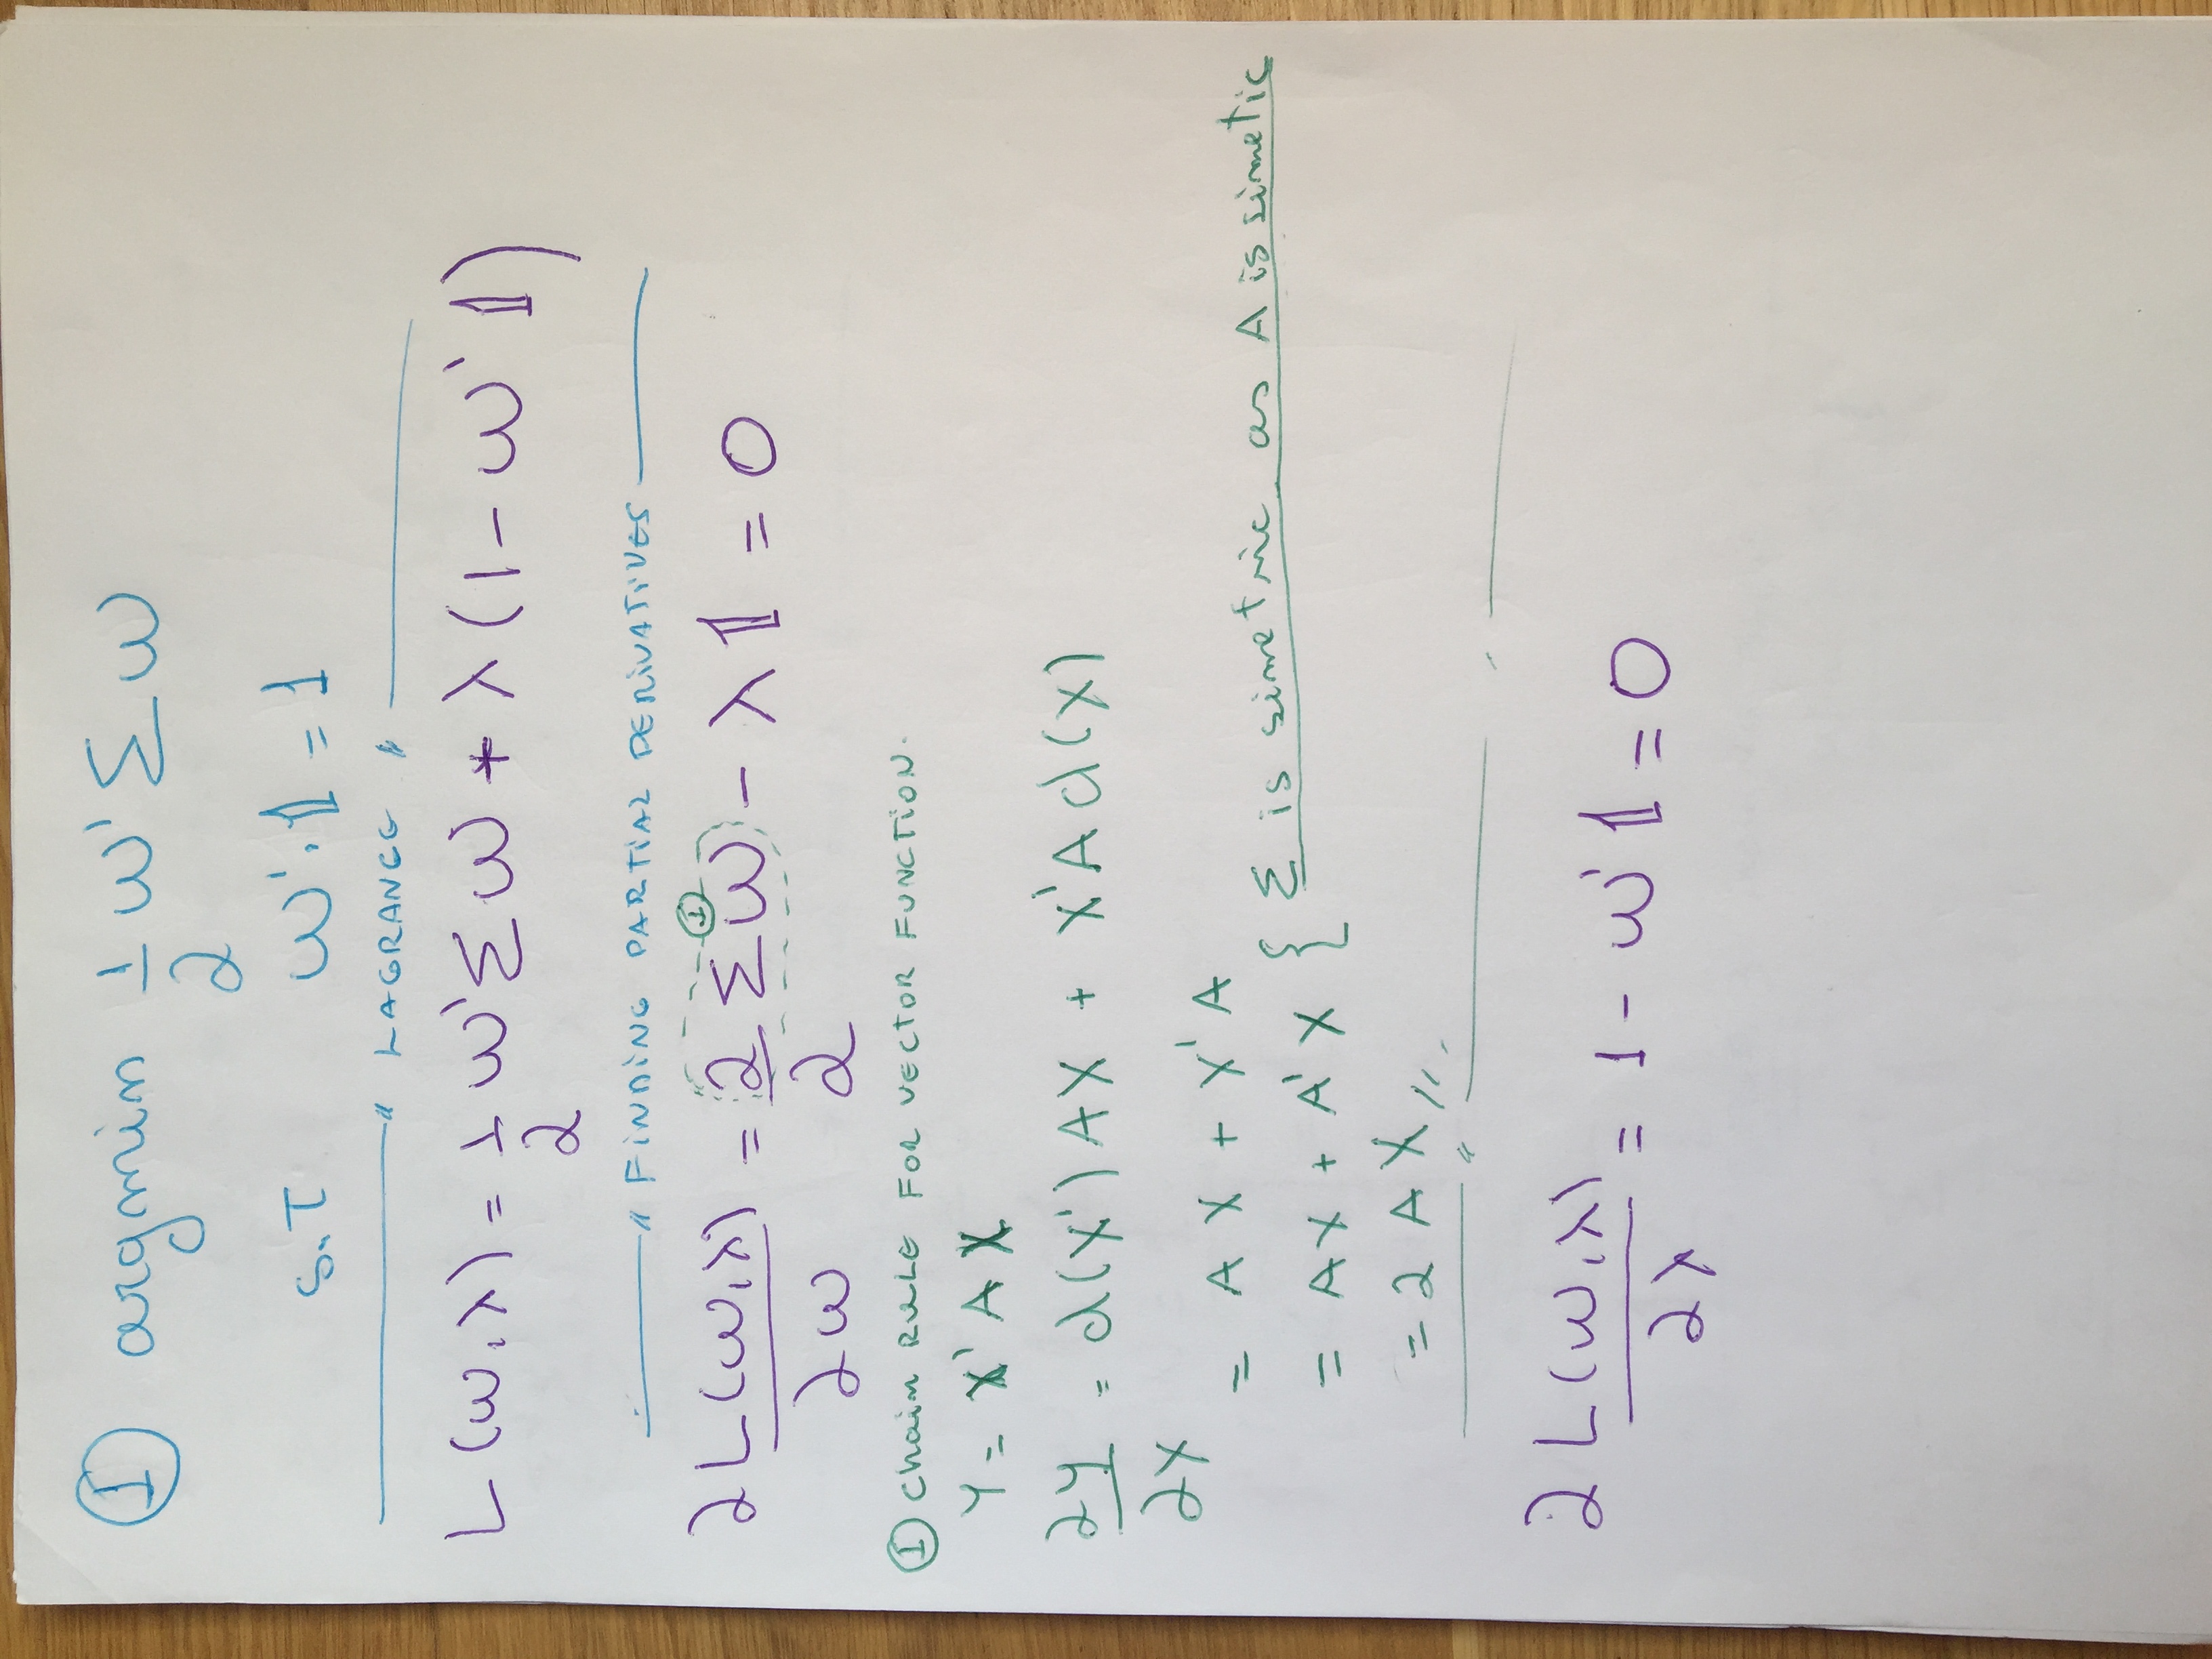 ① argmin 1/2 ω' Σ ω
S.T ω'.𝟙 = 1
" LAGRANGE "
L(ω,λ) = 1/2 ω'Σω + λ(1 - ω'𝟙)
" FiNDiNG PARTiAL DERiVATiVES
∂L(ω,λ)/∂ω = 2/2 Σω ① - λ𝟙 = 0
① Chain RULE FOR VECTOR FUNCTiON.
Y = X'AX
∂y/∂x = d(X')AX + X'A d(X)
= AX + X'A
= AX + A'X { Σ is simetric as A is simetic
= 2AX //.
∂L(ω,λ)/∂λ = 1 - ω'𝟙 = 0